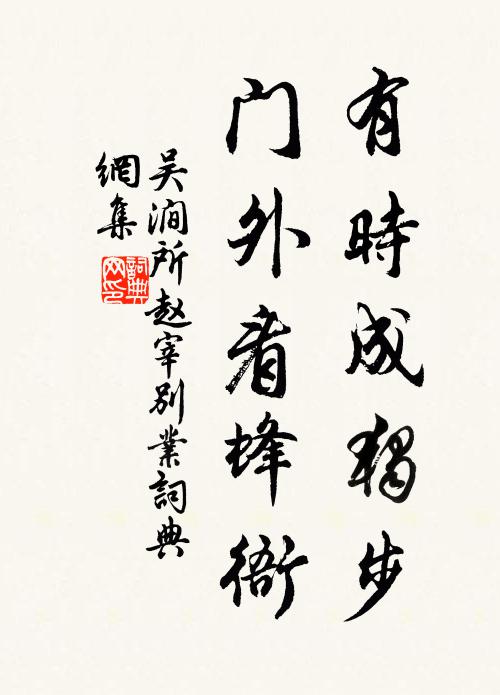 有時成獨步
门外看蜂衙
吴澗所赵宰别業詞典
網集
詞典网印